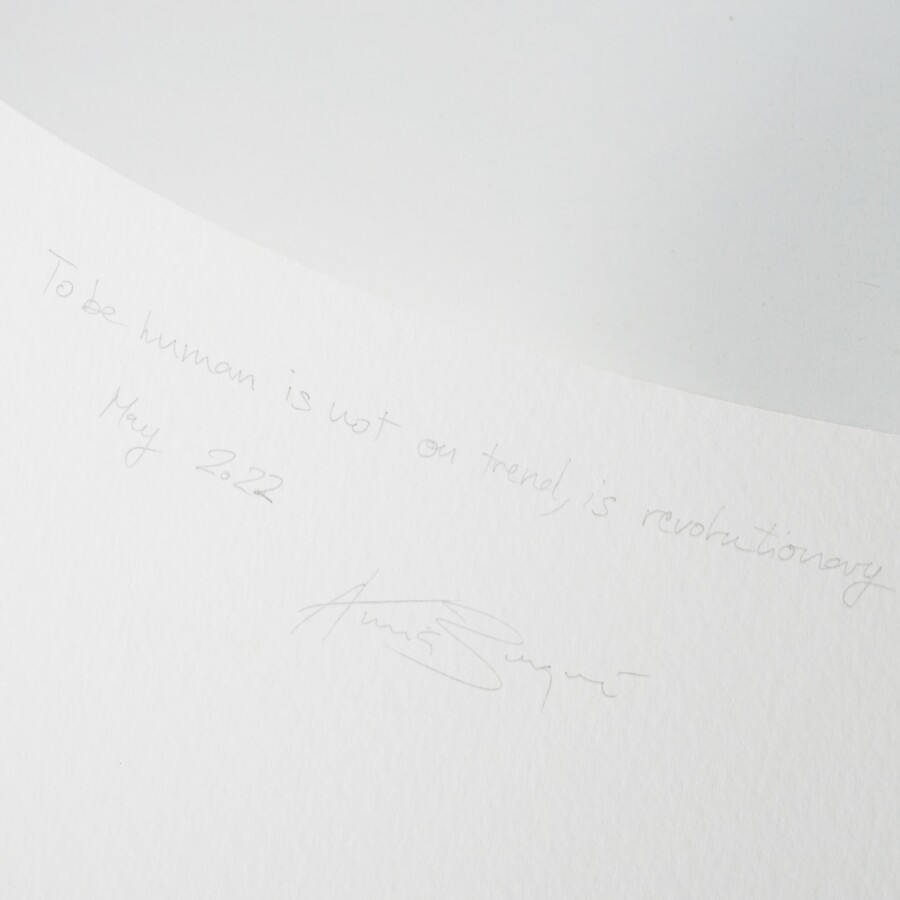 To be human is not on trend, is revolutionary
May 2022